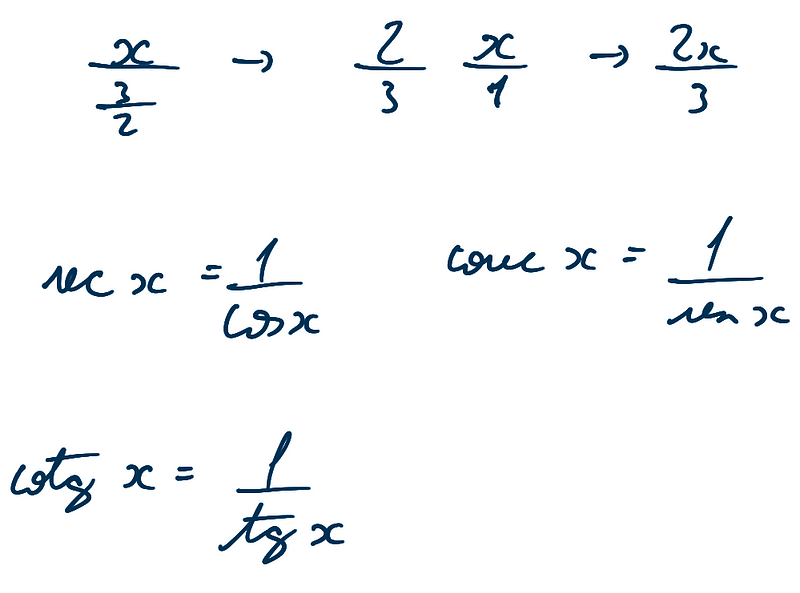 x/(3/2) → 2/3 x/1 → 2x/3
sec x = 1/cos x
cosec x = 1/sen x
cotg x = 1/tg x